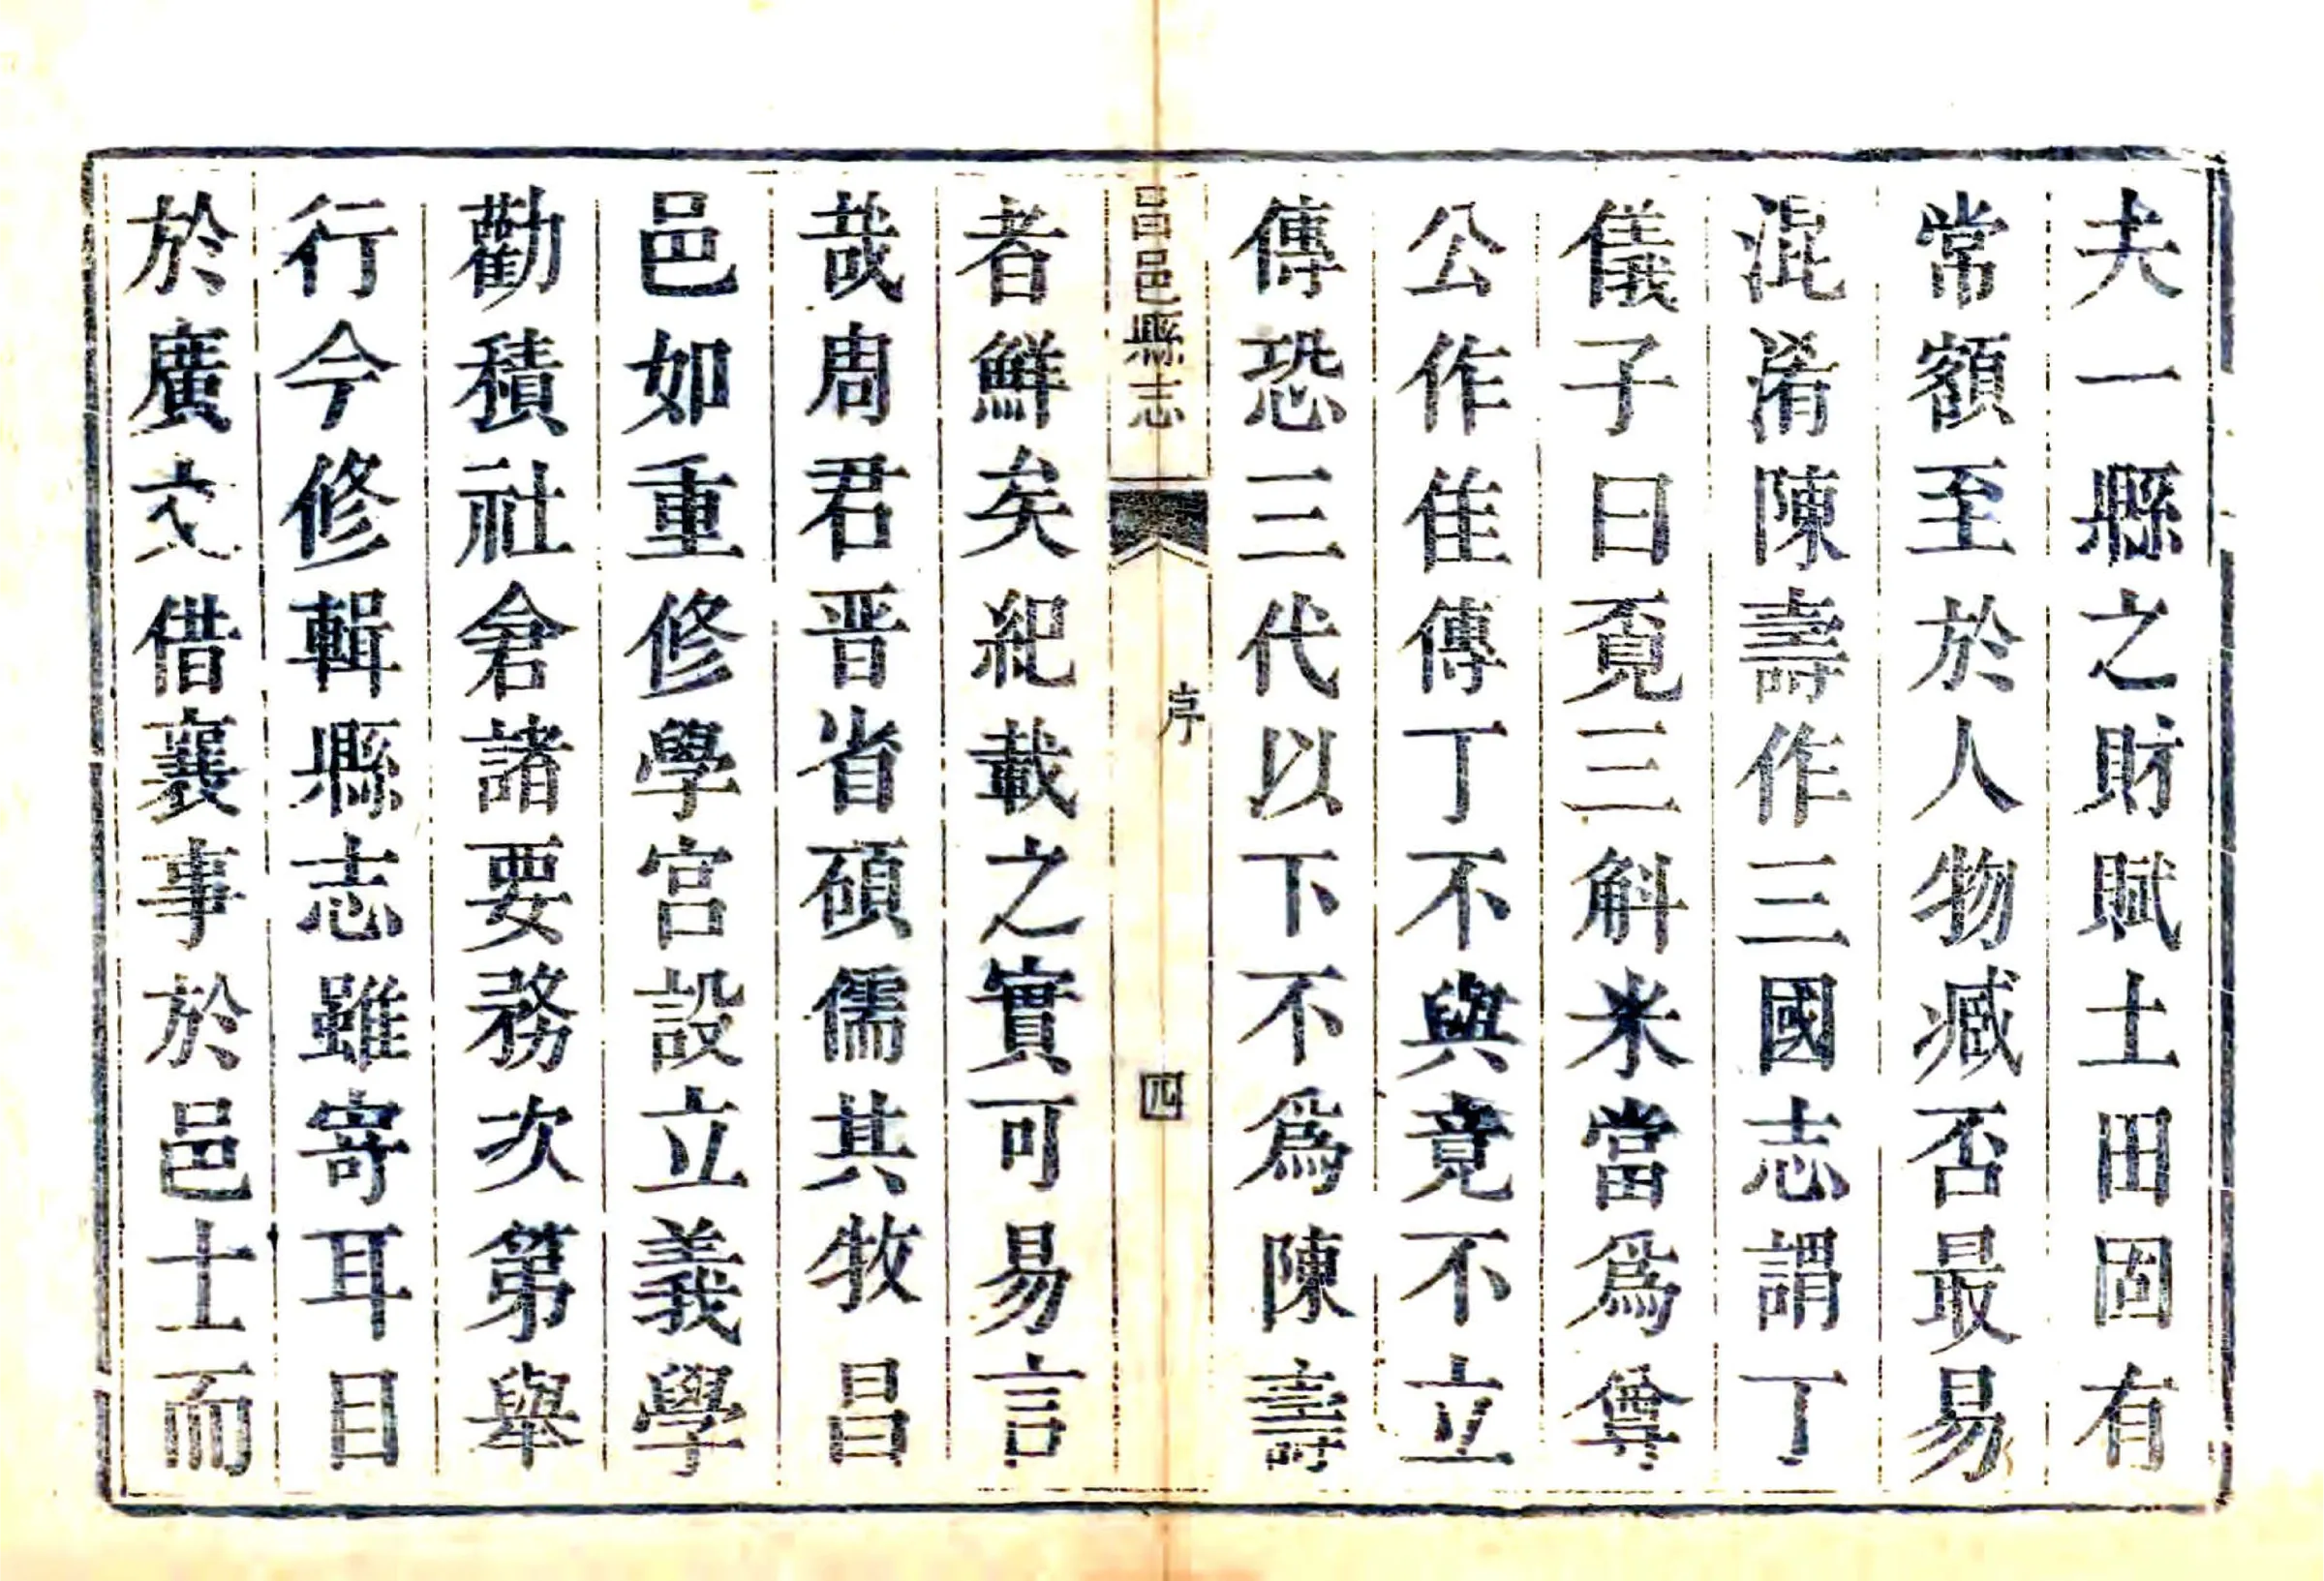 夫一縣之財賦土田固有
常額至於人物臧否最易
混淆陳壽作三國志謂丁
儀子曰覓三斛米當爲尊
公作佳傳丁不與竟不立
傳恐三代以下不爲陳壽
昌邑縣志
序
四
者鮮矣紀載之實可易言
哉周君晋省碩儒其牧昌
邑如重修學宮設立義學
勸積社倉諸要務次第舉
行今修輯縣志雖寄耳目
於廣文借襄事於邑士而